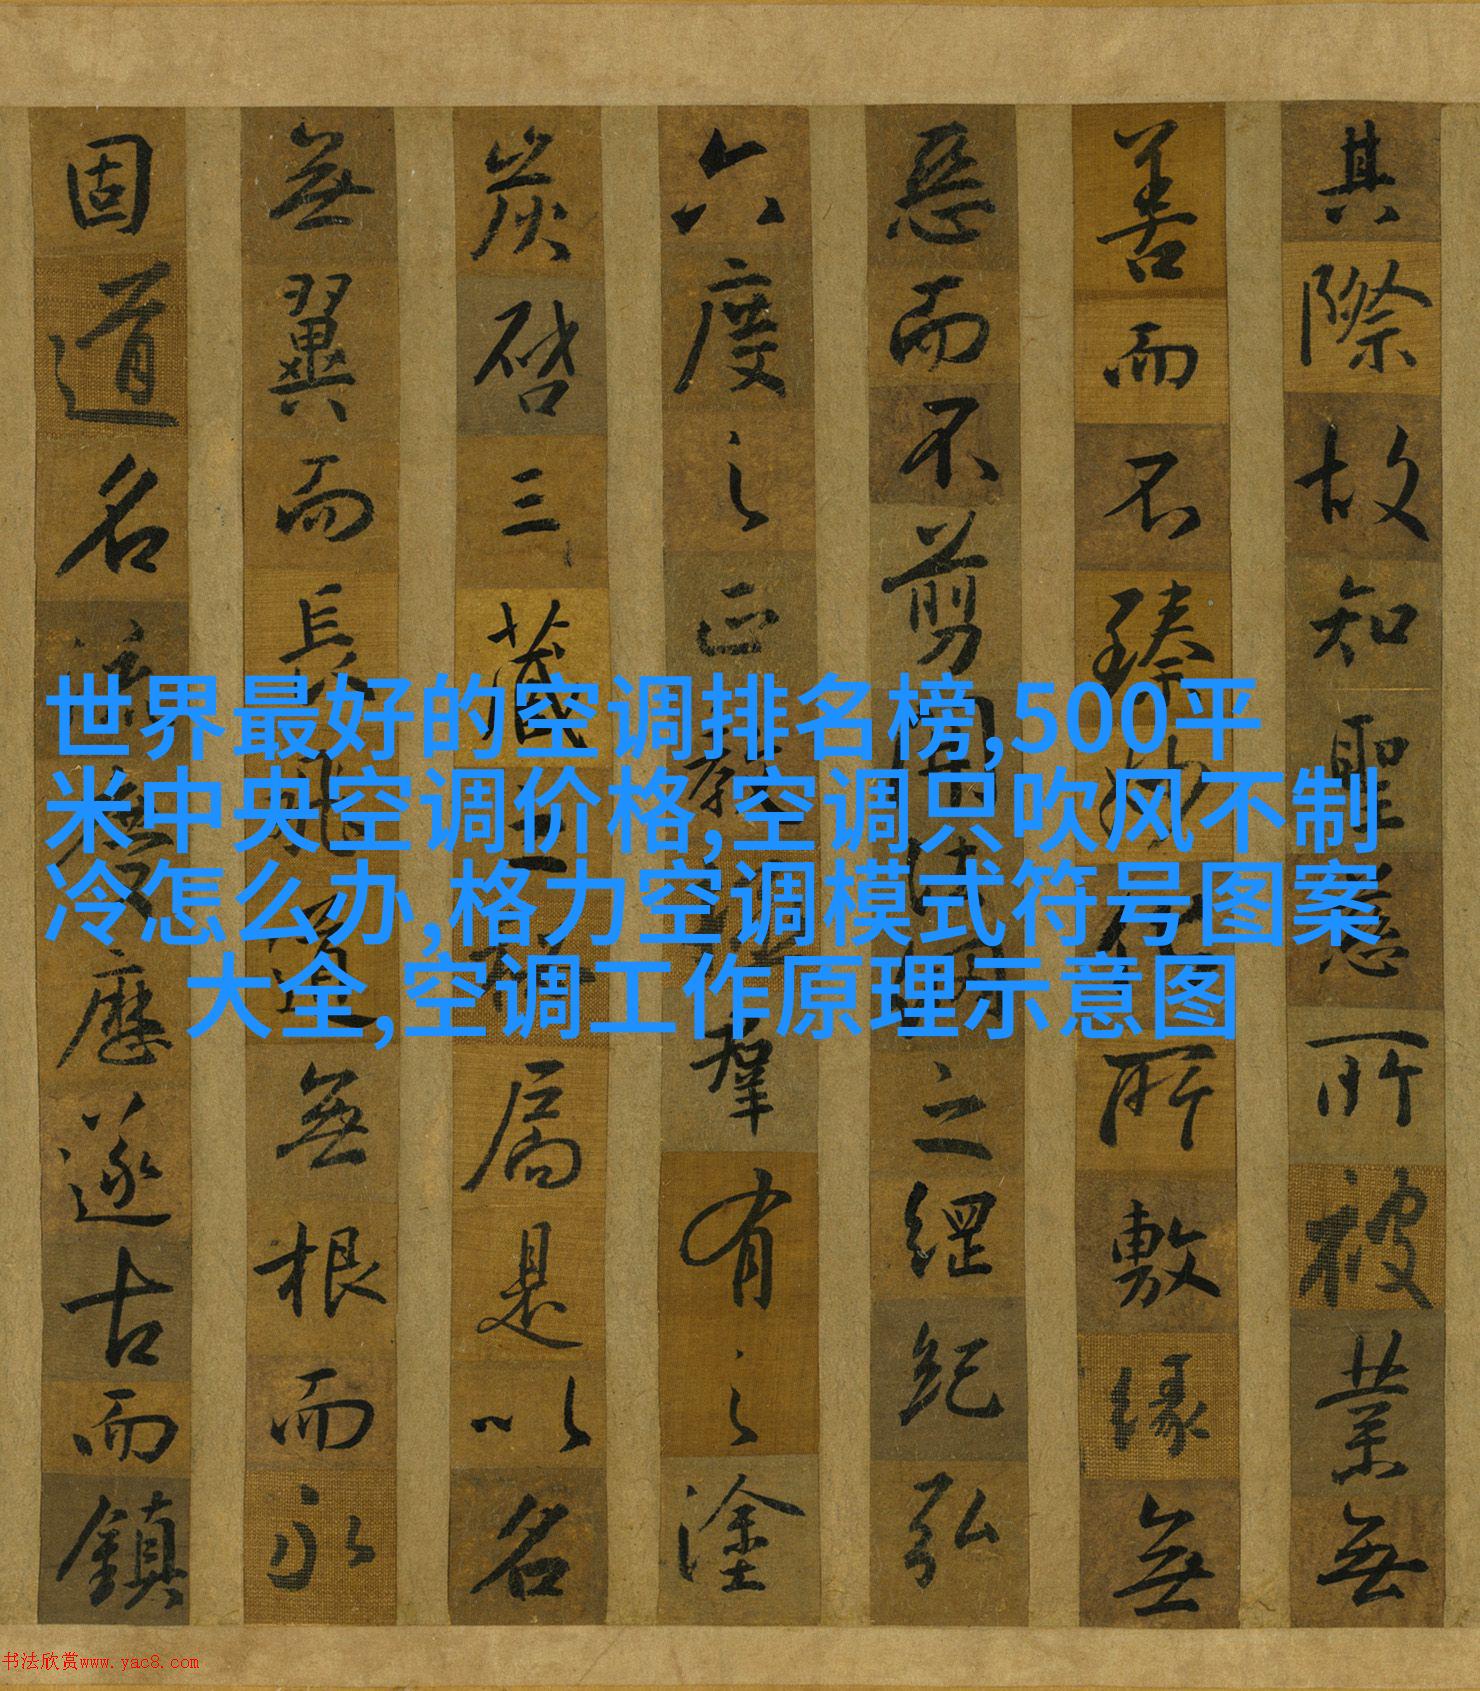 其際故知聖慈所被業無
善而不臻妙所敷緣無
惡而不剪開之綱紀弘
六度之正教拯羣有之塗
炭啓三藏之扃是以名
無翼而長飛道無根而永
固道名流慶歷遂古而鎮
世界最好的空调排名榜,500平
米中央空调价格,空调只吹风不制
冷怎么办,格力空调模式符号图案
大全,空调工作原理示意图
书法欣赏www.yac8.com